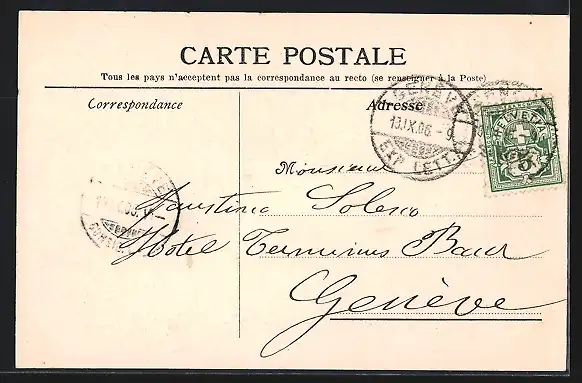 CARTE POSTALE
Tous les pays n'acceptent pas la correspondance au recto (se renseigner à la Poste)
Correspondance
Adresse
GENÈVE
13.IX.06.-9
EXP. LETT.
HELVETIA
5
Monsieur
Faustino Solesco
Hotel Terminus Baur
Genève